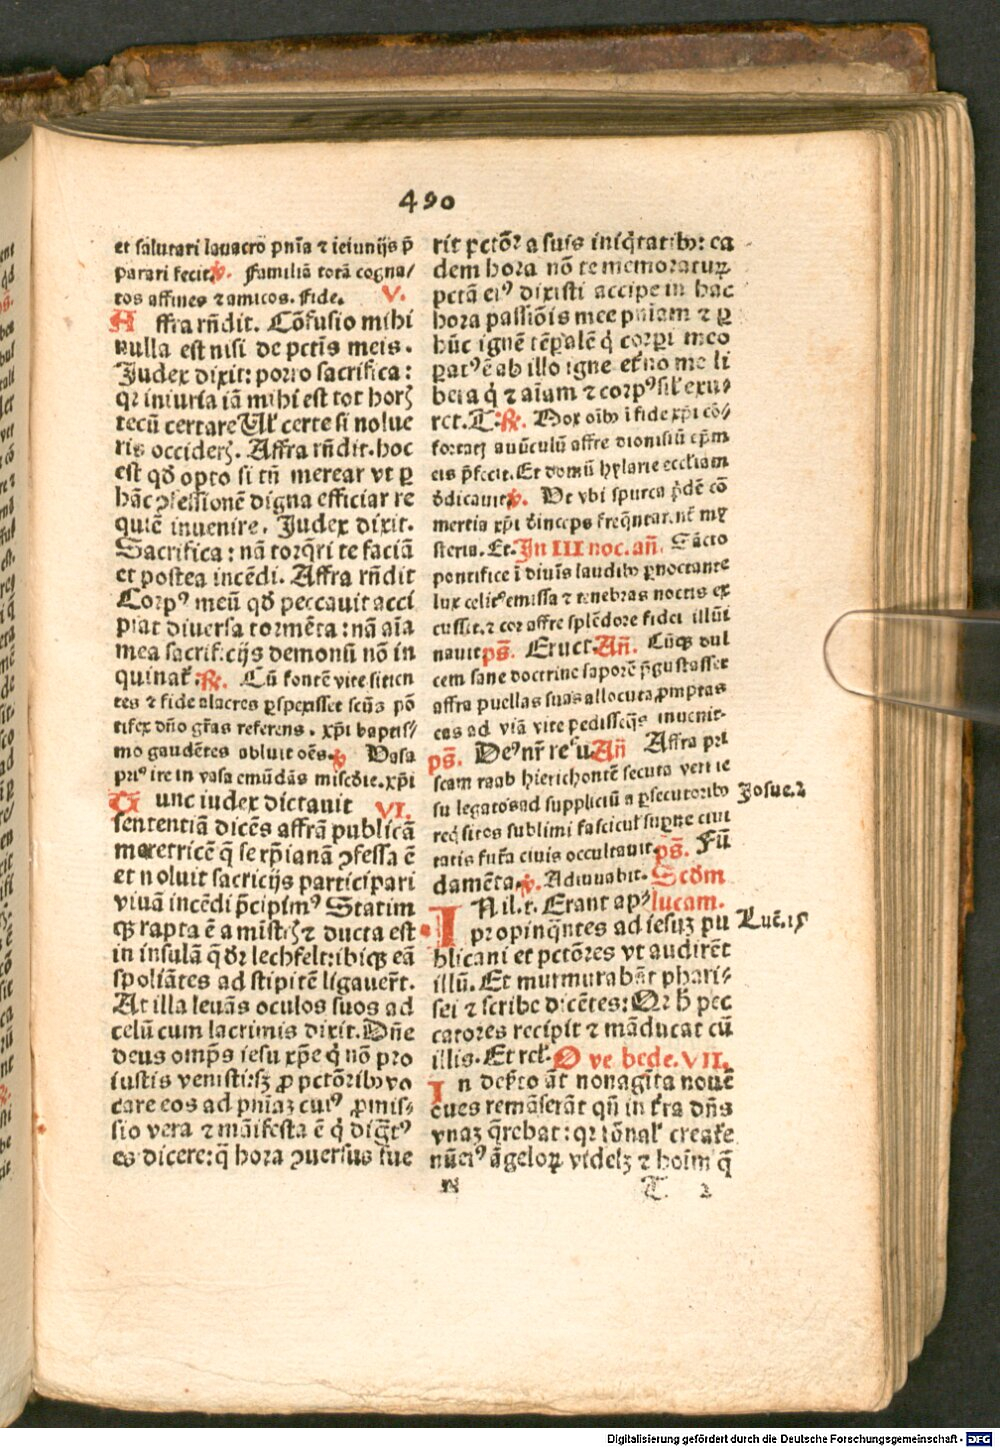 490
et salutari lauacro pnīa ⁊ ieiunijs p̄
parari fecit ℣. Familiā totā cogna/
tos affines ⁊ amicos. fide. V.
Affra rñdit. Cōfusio mihi
nulla est nisi de pctīs meis.
Judex dixit: porro sacrifica:
qꝛ iniuria iā mihi est tot horꝭ
tecū certare Ul' certe si nolue
ris occiderꝭ. Affra rñdit. hoc
est qð opto si tñ merear vt ꝑ
hāc ꝯfessionē digna efficiar re
quiē inuenire. Judex dixit.
Sacrifica: nā torq̄ri te faciā
et postea incēdi. Affra rñdit
Corpꝰ meū qð peccauit acci
piat diuersa tormēta: nā aīa
mea sacrificijs demonū nō in
quinat'. ℟. Cū fontē vite sitien
tes ⁊ fide alacres ꝑspexisset scūs pō
tifex dño gr̄as referens. xp̄i baptis/
mo gaudētes abluit oēs. ℣ Vasa
priꝰ ire in vasa emūdās misc̄die. xp̄i
Tunc iudex dictauit VI.
sententiā dicēs affrā publicā
meretricē q̄ se xp̄ianā ꝯfessa ē
et noluit sacricijs participari
viuā incēdi p̄cipimꝰ Statim
qꝫ rapta ē a mistrꝭ ⁊ ducta est
in insulā q̄ dr̄ lechfelt: ibiqꝫ eā
spoliātes ad stipitē ligauer̄t.
At illa leuās oculos suos ad
celū cum lacrimis dixit. Dñe
deus omp̄s iesu xp̄e q̇ nō pro
iustis venisti: sꝫ ꝓ pctōribꝫ vo
care eos ad pnīaꝫ cuiꝰ ꝓmis/
sio vera ⁊ māifesta ē q̇ dig̃tꝰ
es dicere: q̄ hora ꝯuersus fue
rit pctōr a suis iniq̇tatibꝫ: ea
dem hora nō te memoraturꝝ
pctā eiꝰ dixisti accipe in hac
hora passiōis mee pniam ⁊ ꝑ
hūc ignē tēꝑalē q̇ corꝑi meo
ꝑatꝰ ē ab illo igne et'no me li
bera q̇ ⁊ aīam ⁊ corpꝰ sil' exu/
ret. T. ℟. Mox oībꝫ ī fide xp̄i cō/
fortatꝭ auūculū affre dionisiū ep̄m
eis p̄fecit. Et domū hylarie eccl'iam
dedicauit ℣. Vt vbi spurca p̄dē cō
mertia xp̄i deinceps freq̄ntarent' my
steria. Et. In III noc. añ. Sācto
pontifice ī diuīs laudibꝫ ꝑnoctante
lux celitꝰ emissa ⁊ tenebras noctis ex
cussit. ⁊ cor affre splēdore fidei illūi
nauit pš. Eruct. Añ. Cūqꝫ dul
cem sane doctrine saporē p̄gustasset
affra puellas suas allocuta ꝓmptas
eas ad viā vite pedisseq̄s inuenit.
pš. Deꝰ nr̄ refu Añ Affra pri
scam raab hierichontē secuta
su legatos ad suppliciū a ꝑsecutoribꝫ
req̇sitos sublimi fascicul' supne ciui
tatis fut'a ciuis occultauit pš. Fū
damēta. ℣. Adiuuabit. Scðm
In il. t. Erant apꝫ lucam.
propinq̄ntes ad iesuꝫ pu
blicani et pctōres vt audirēt
illū. Et murmurabāt phari/
sei ⁊ scribe dicētes: Qꝛ h̄ pec
catores recipit ⁊ māducat cū
illis. Et rel'. O ve. bede. VII.
In deserto āt nonagīta nouē
oues remāserāt qñ in t'ra dñs
vnaꝫ q̄rebat: qꝛ rōnal' creat'e
nūeꝰ āgeloꝝ videlꝫ ⁊ hoīm q̄
Josue. 2
Luē. 15
N
T 2
Digitalisierung gefördert durch die Deutsche Forschungsgemeinschaft - DFG